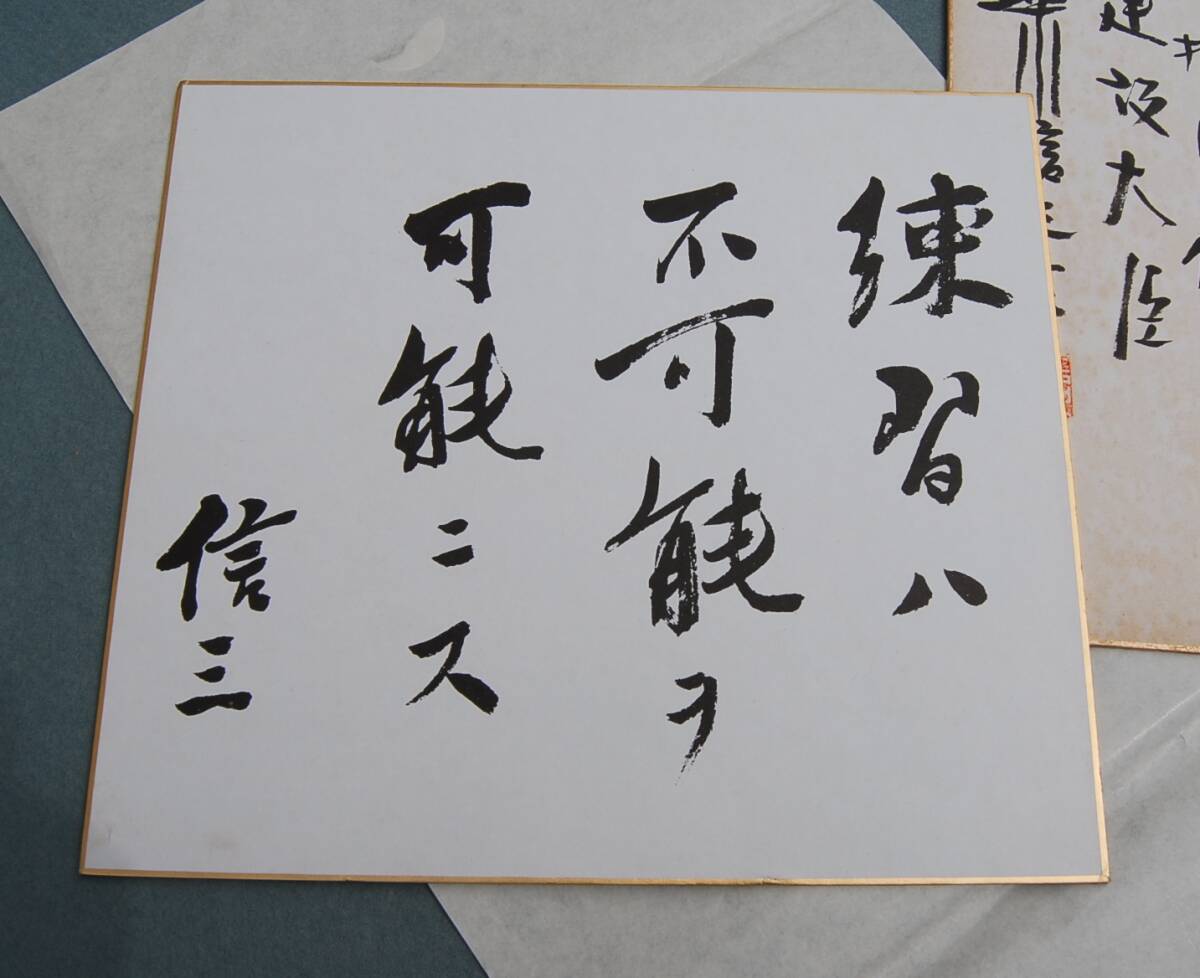 練習ハ
不可能ヲ
可能ニス
信三
建設大臣